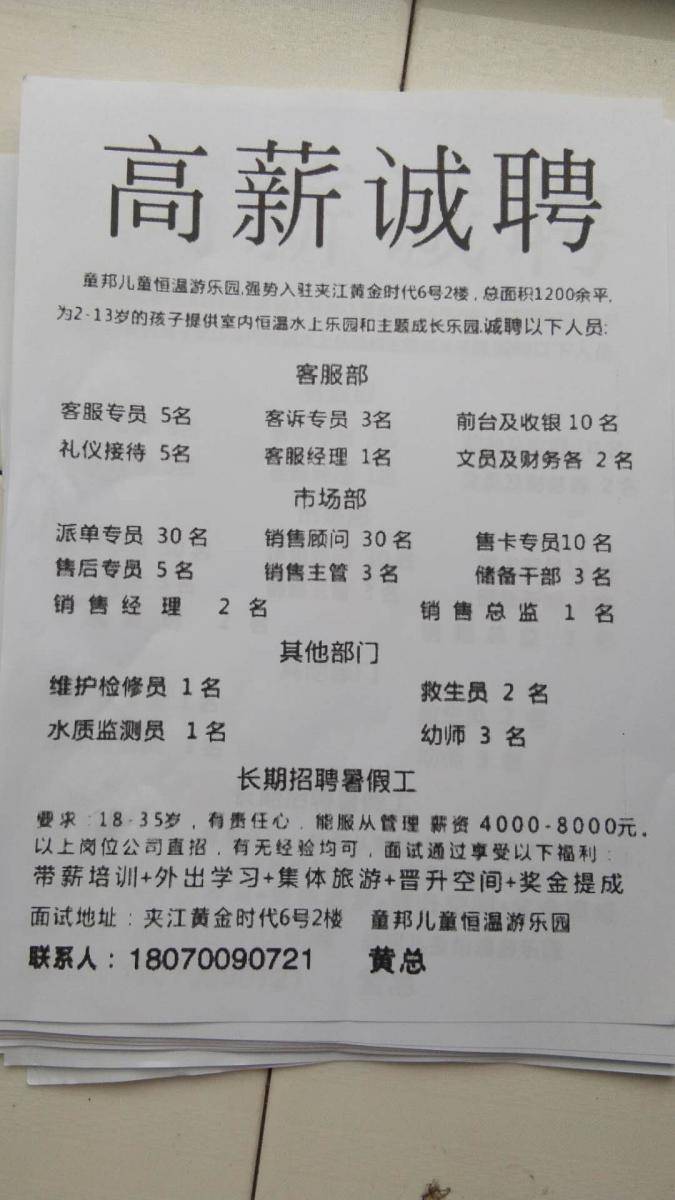 高薪诚聘
童邦儿童恒温游乐园,强势入驻夹江黄金时代6号2楼，总面积1200余平,
为2-13岁的孩子提供室内恒温水上乐园和主题成长乐园.诚聘以下人员:
客服部
客服专员 5名 客诉专员 3名 前台及收银 10 名
礼仪接待 5名 客服经理 1名 文员及财务各 2 名
市场部
派单专员 30 名 销售顾问 30 名 售卡专员10 名
售后专员 5 名 销售主管 3 名 储备干部 3 名
销售经理 2 名 销售总监 1 名
其他部门
维护检修员 1 名 救生员 2 名
水质监测员 1 名 幼师 3 名
长期招聘暑假工
要求：18-35岁，有责任心，能服从管理 薪资 4000-8000元。
以上岗位公司直招，有无经验均可，面试通过享受以下福利：
带薪培训+外出学习+集体旅游+晋升空间+奖金提成
面试地址：夹江黄金时代6号2楼 童邦儿童恒温游乐园
联系人：18070090721 黄总